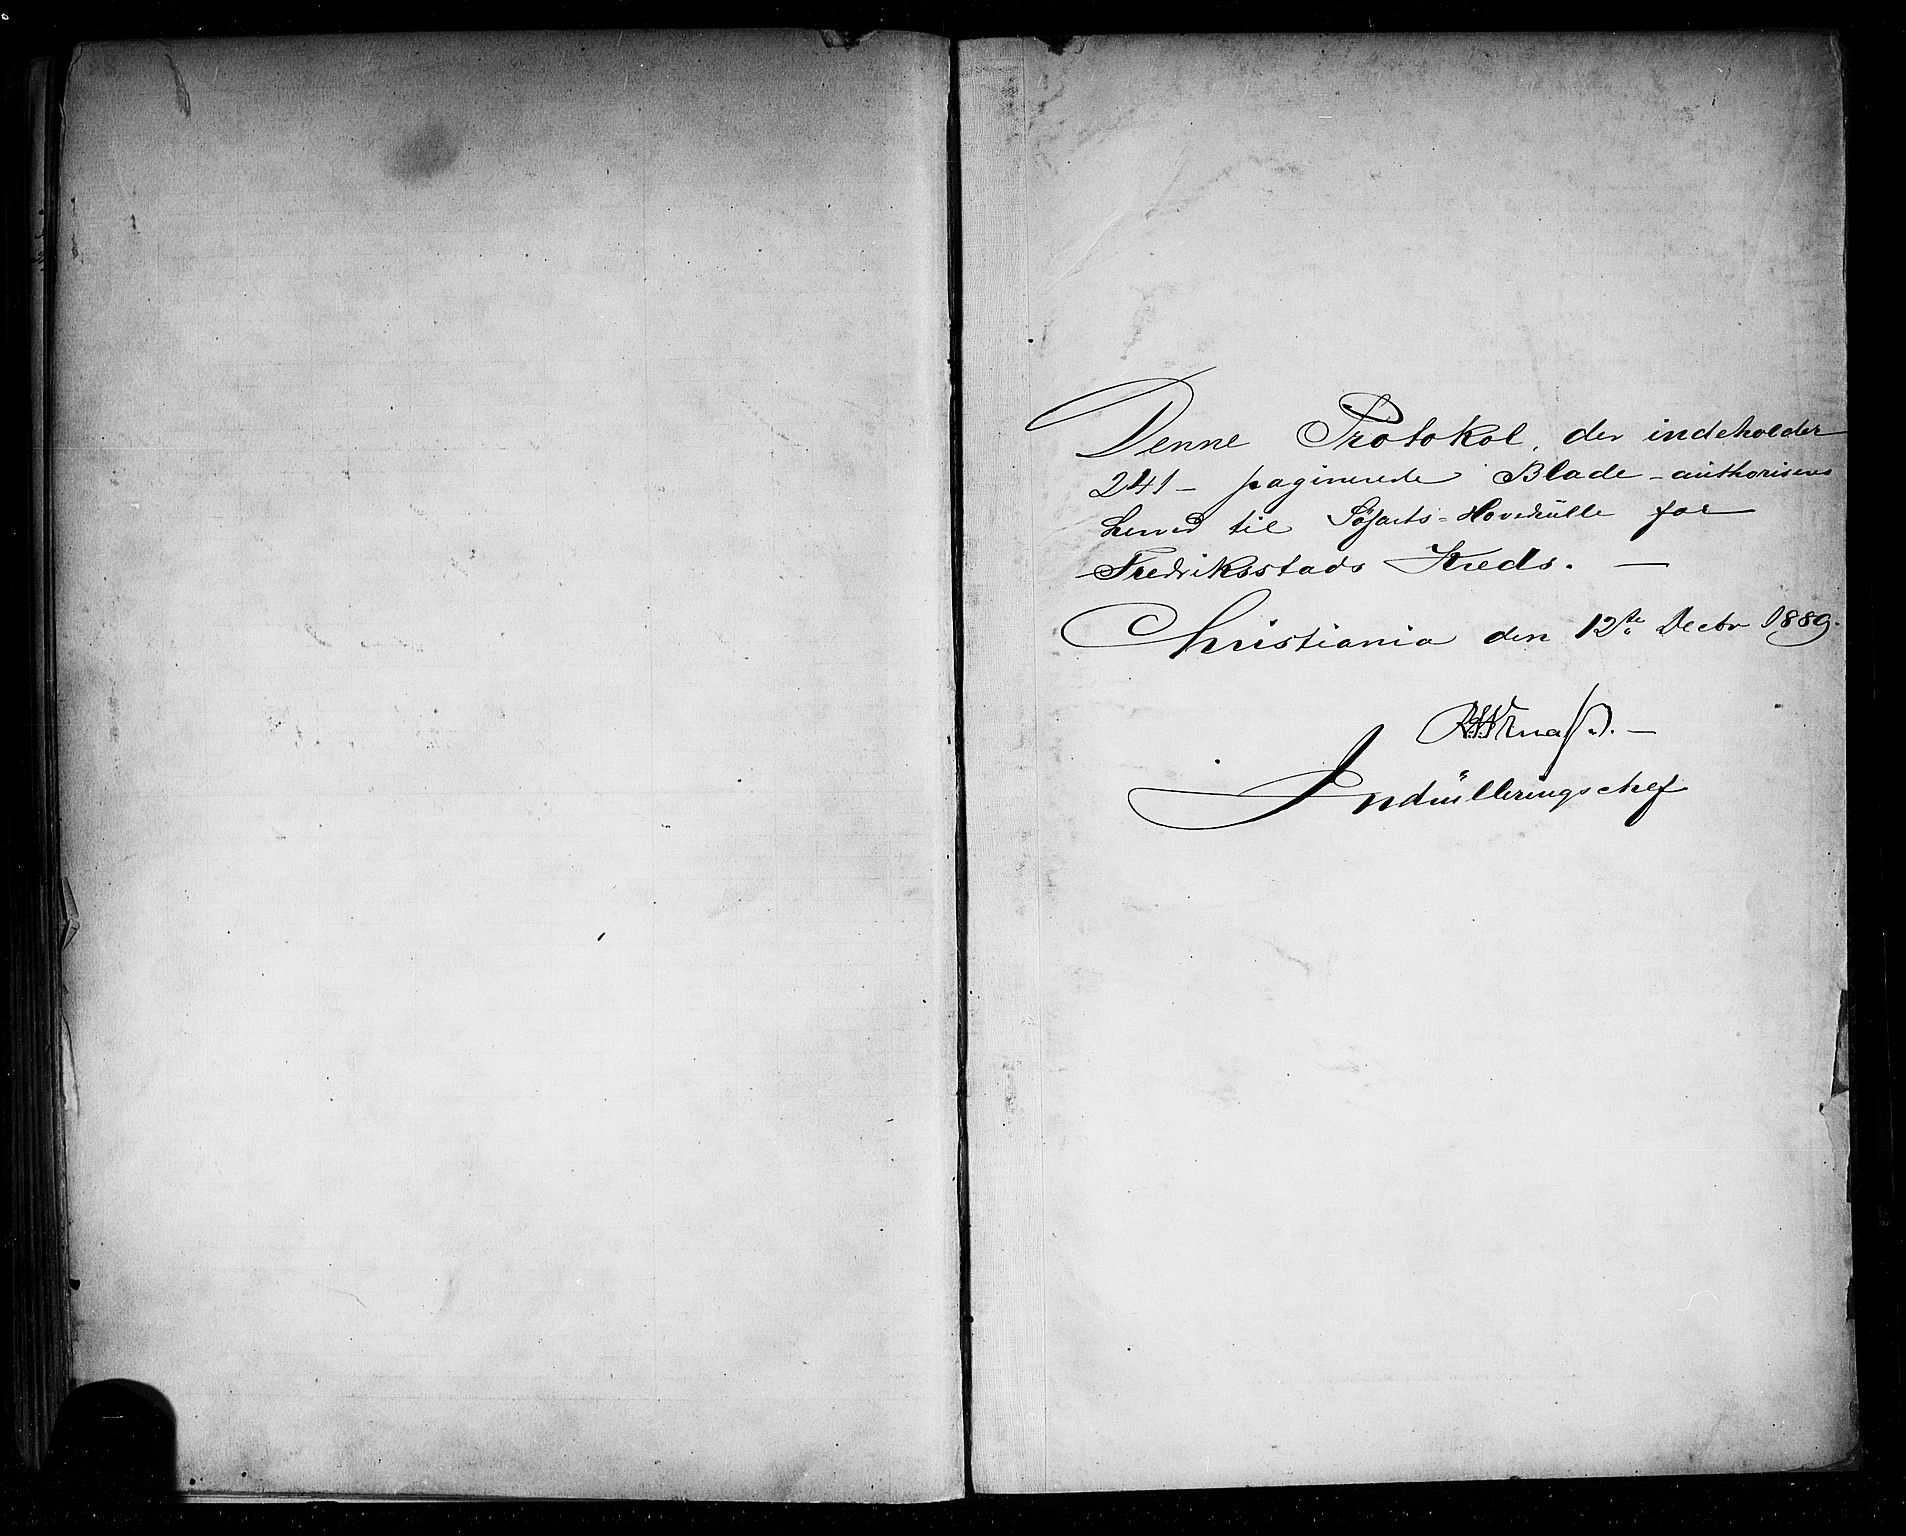 Denne Protokol, der indeholder
241 - paginerede Blade - authoriseres
herved til Søfarts-Hovedrülle for
Fredriksstads Kreds. —
Christiania den 12te Decbr 1889.
Indrülleringschef